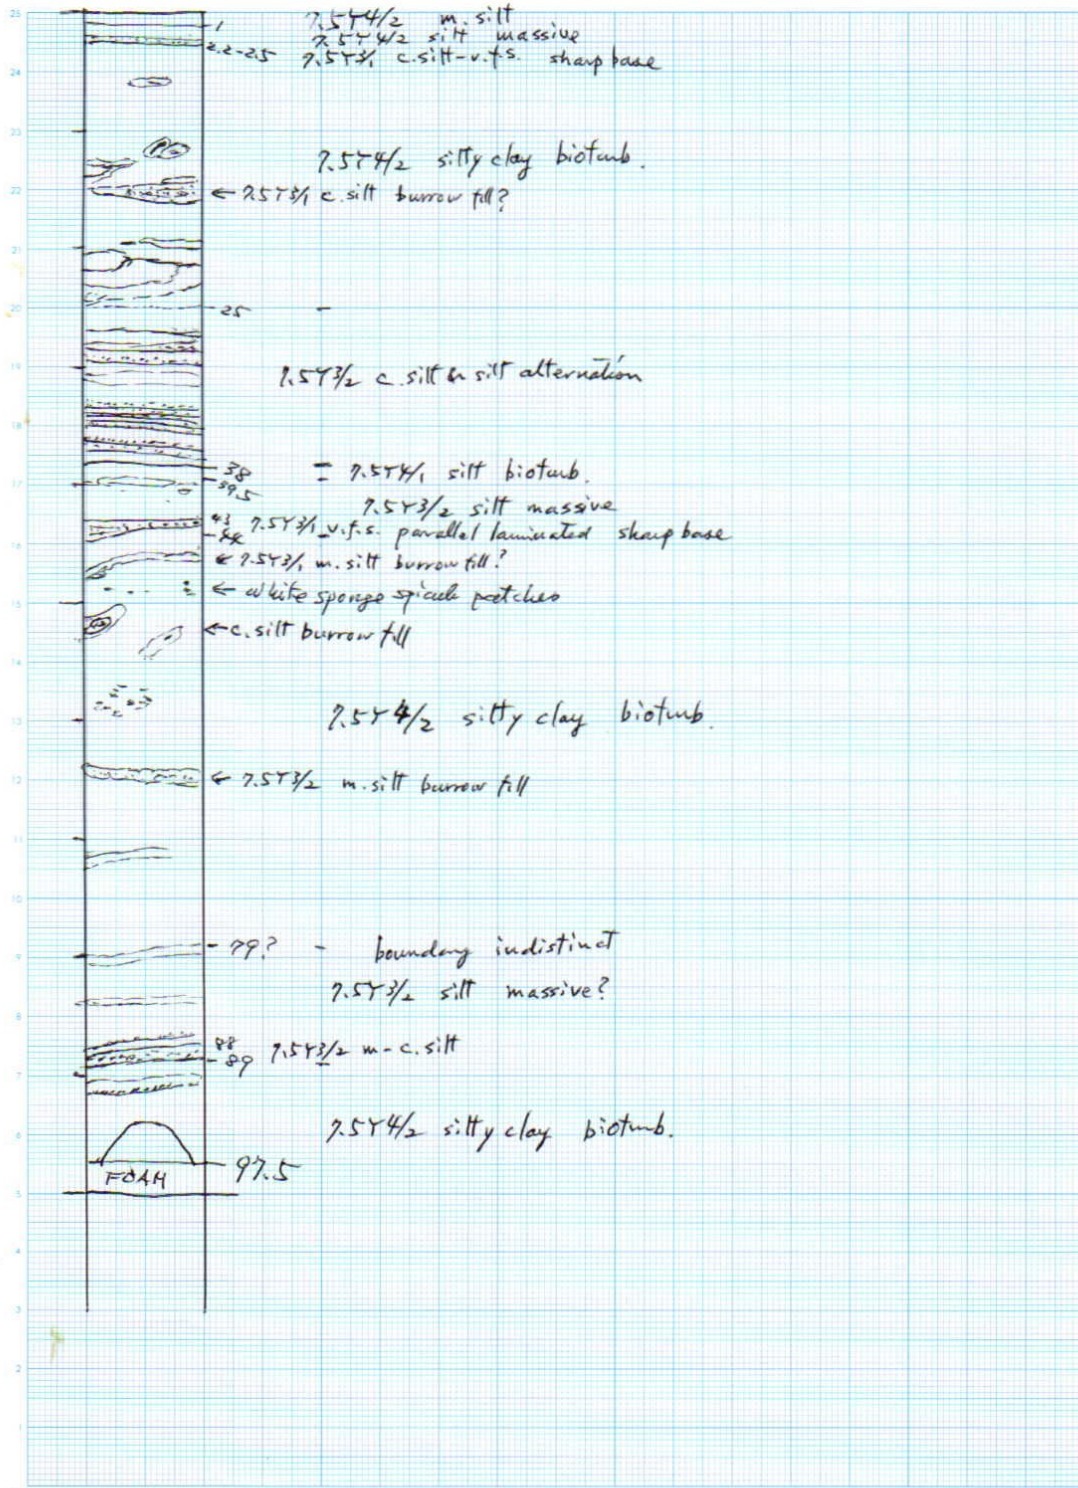 25
7.5Y4/2 m. silt
1
7.5Y4/2 silt massive
2.2-2.5 7.5Y3/1 c.silt-v.f.s. sharp base
24
23
7.5Y4/2 silty clay bioturb.
22
← 7.5Y3/1 c. silt burrow fill?
21
20
25 -
19
7.5Y3/2 c. silt & silt alternation
18
38 = 7.5Y4/1 silt bioturb.
17
39.5
7.5Y3/2 silt massive
43 7.5Y3/1 v.f.s. parallel laminated sharp base
44
16
← 7.5Y3/1 m. silt burrow fill?
← white sponge spicule patches
15
← c. silt burrow fill
14
13
7.5Y4/2 silty clay bioturb.
12
← 7.5Y3/2 m. silt burrow fill
11
10
79? - boundary indistinct
9
7.5Y3/2 silt massive?
8
88 7.5Y3/2 m-c. silt
89
7
6
7.5Y4/2 silty clay bioturb.
FOAM 97.5
5
4
3
2
1